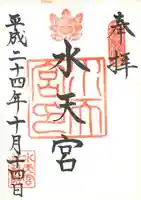 奉拝
水天宮
平成二十四年十月十四日
水天宮